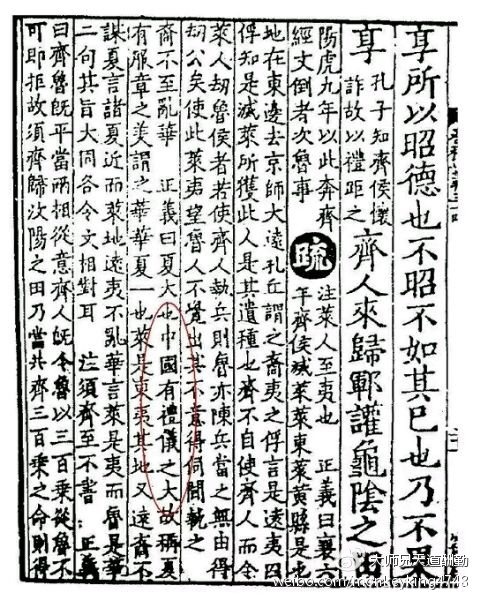 享所以昭德也不昭不如其已也乃不果
享
孔子知齊侯懷
詐故以禮距之
齊人來歸鄆讙龜陰之田
陽虎九年以此奔齊
經文倒者次魯事
疏
注萊人至夷也 正義曰襄六
年齊侯滅萊萊東萊黃縣是也
地在東邊去京師大遠孔丘謂之裔夷之俘言是遠夷囚
俘知是滅萊所獲此人是其遺種也齊不自使齊人而令
萊人劫魯侯者若使齊人執兵則魯亦陳兵當之無由得
劫公矣使此萊夷望魯人不覺出其不意得伺間執之
裔不至亂華 正義曰夏大也中國有禮儀之大故稱夏
有服章之美謂之華華夏一也萊是東夷其地又遠裔不
謀夏言諸夏近而萊地遠夷不亂華言萊是夷而魯是華
二句其旨大同各令文相對耳 注須齊至不書 正義
曰齊魯既平當兩相從意齊人既令魯以三百乘從魯不
可即拒故須齊歸汶陽之田乃當共齊三百乘之命則得
@大师兄天道酬勤
weibo.com/monkeyking4748